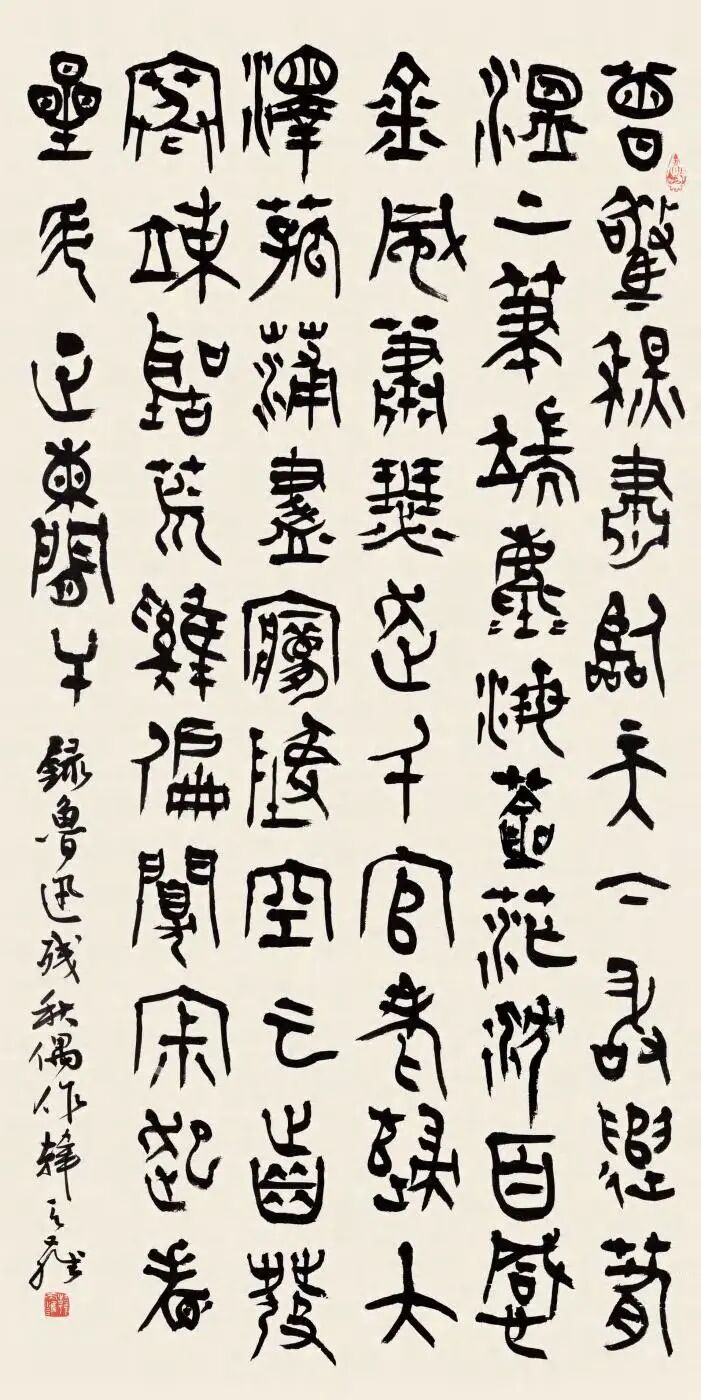 曾驚秋肅臨天下敢遣春
溫上筆端塵海蒼茫沉百感
金風蕭瑟走千官老歸大
澤菰蒲盡夢墜空云齒發
寒竦聽荒雞偏闃寂起看
星斗正闌干 録魯迅残秋偶作韓